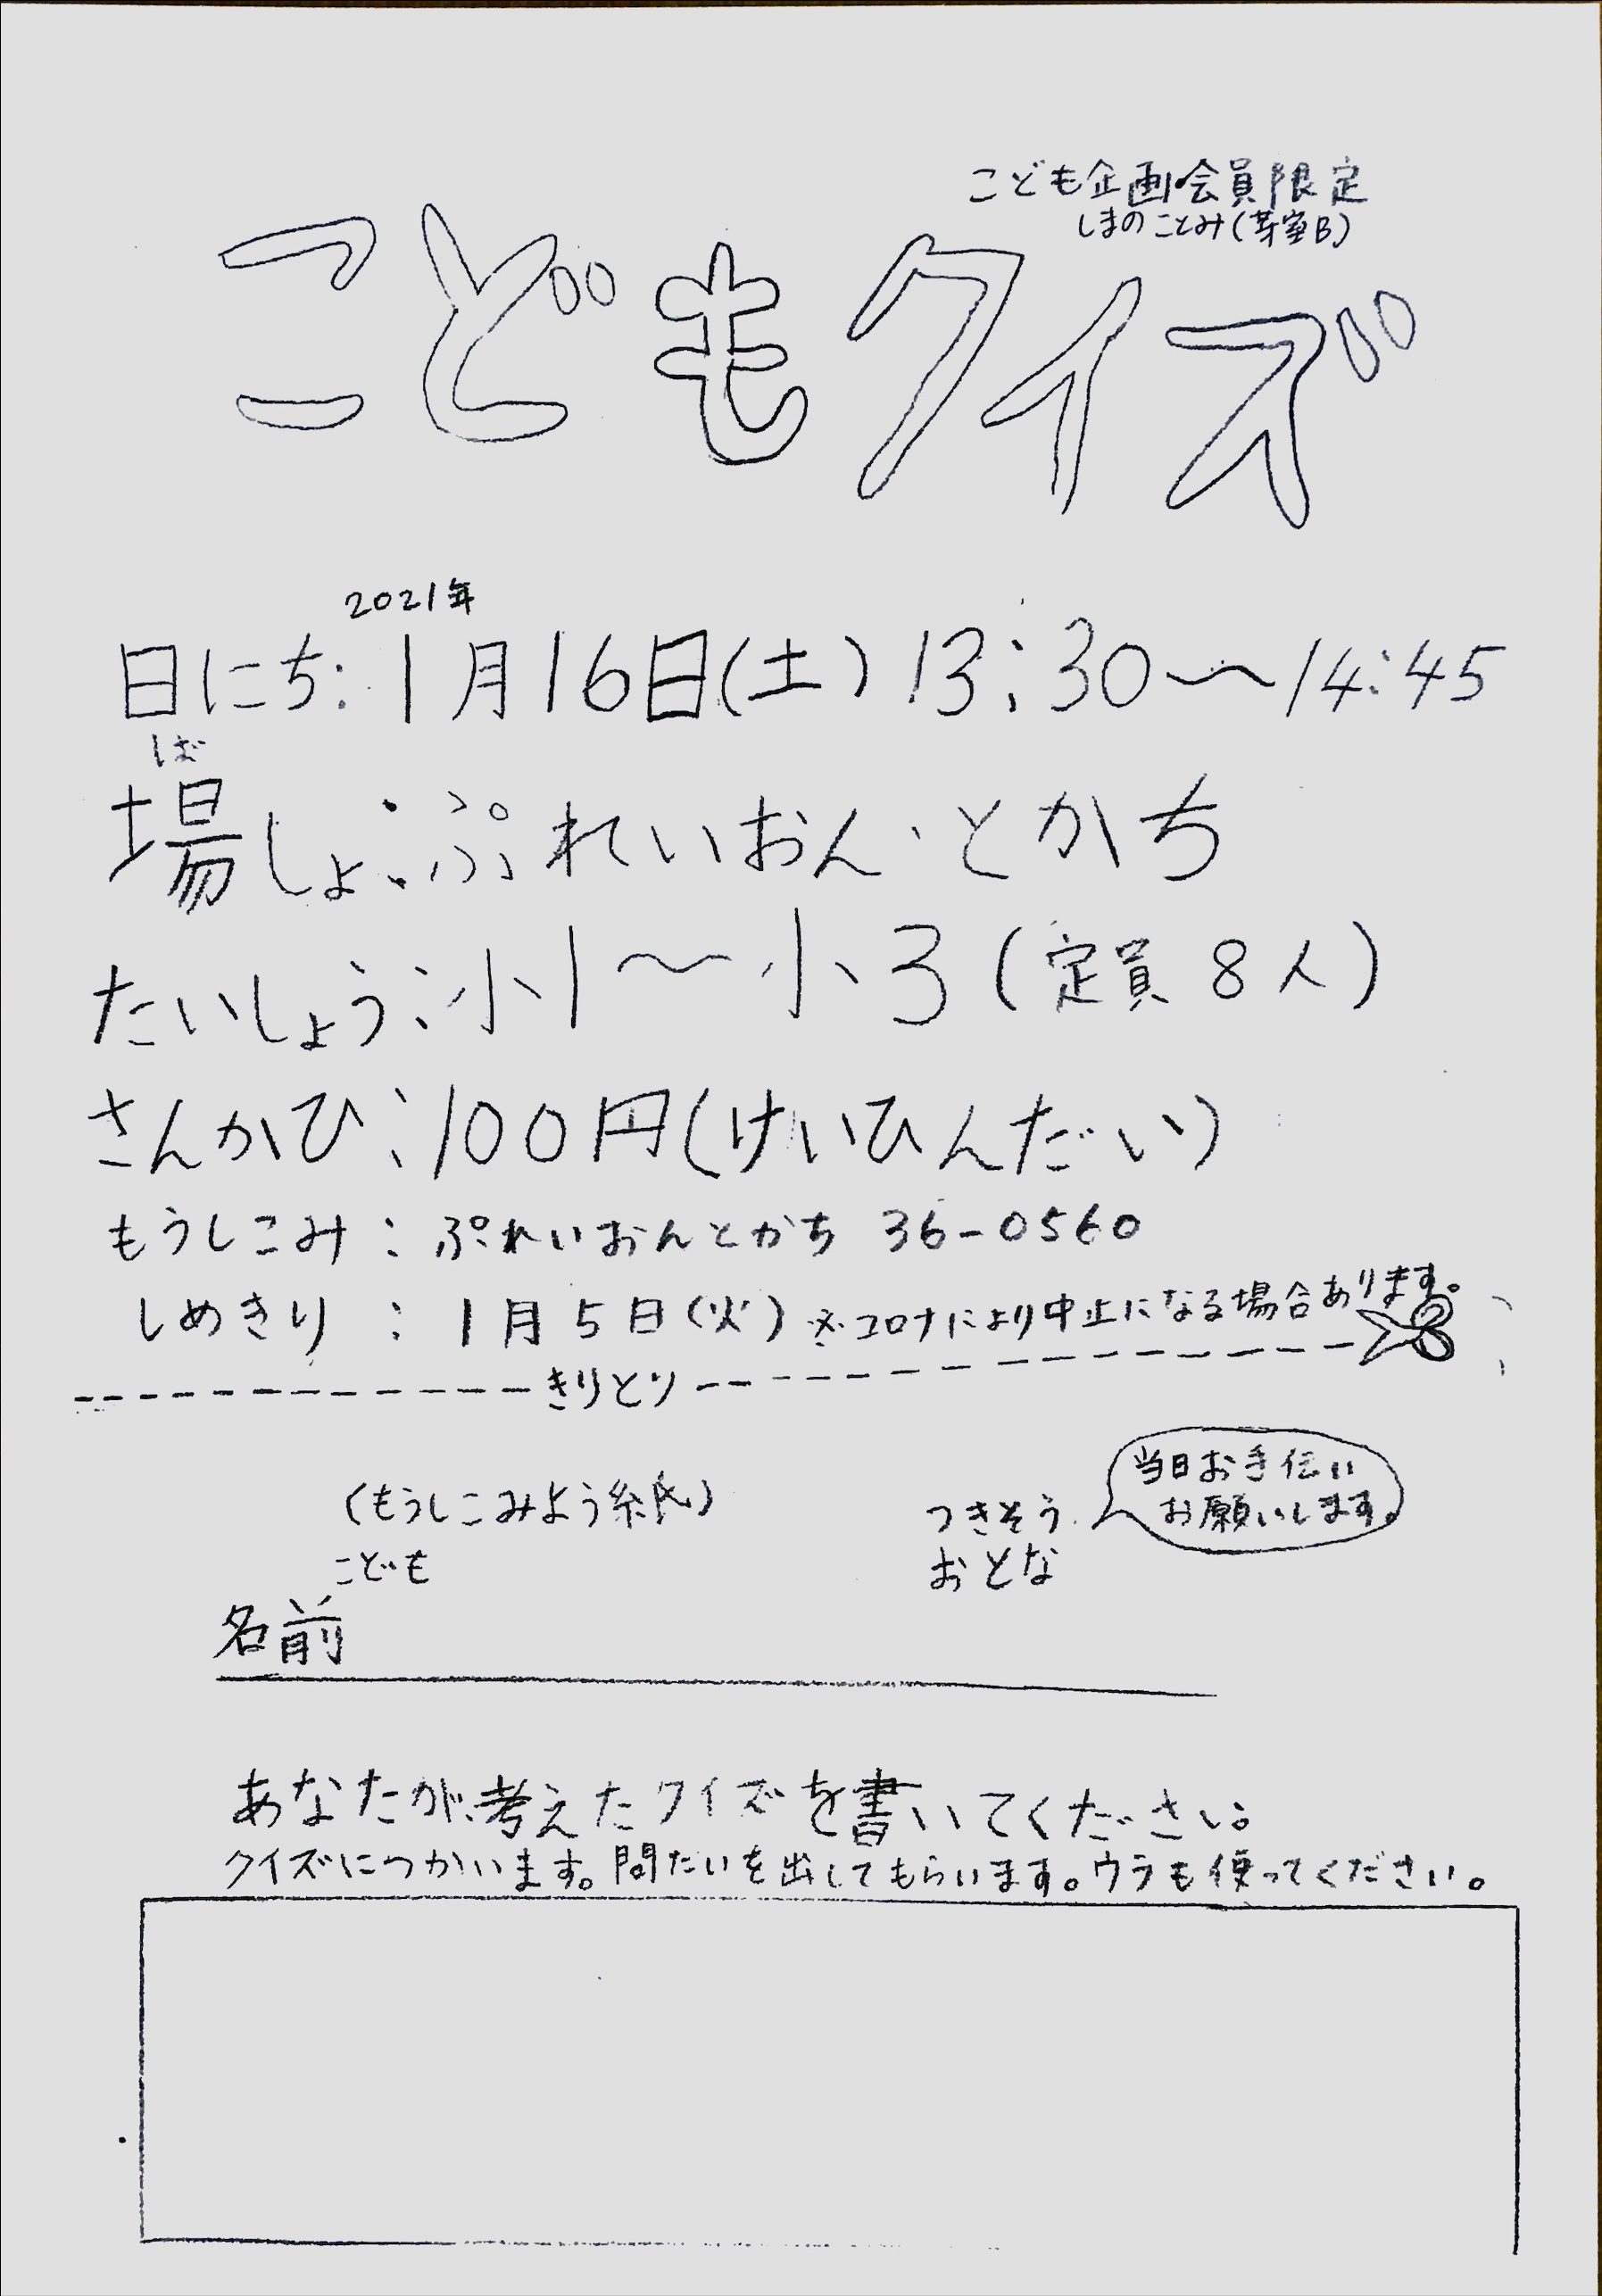 こども企画・会員限定
しまのことみ(芽室B)
こどもクイズ
2021年
日にち:1月16日(土)13:30〜14:45
ば
場しょ:ぷれいおん・とかち
たいしょう:小1〜小3(定員8人)
さんかひ:100円(けいひんだい)
もうしこみ:ぷれいおんとかち 36-0560
しめきり:1月5日(火)※コロナにより中止になる場合あります。
きりとり
(もうしこみよう紙)
当日お手伝い
お願いします。
こども
つきそう
おとな
名前
あなたが考えたクイズを書いてください。
クイズにつかいます。問だいを出してもらいます。ウラも使ってください。